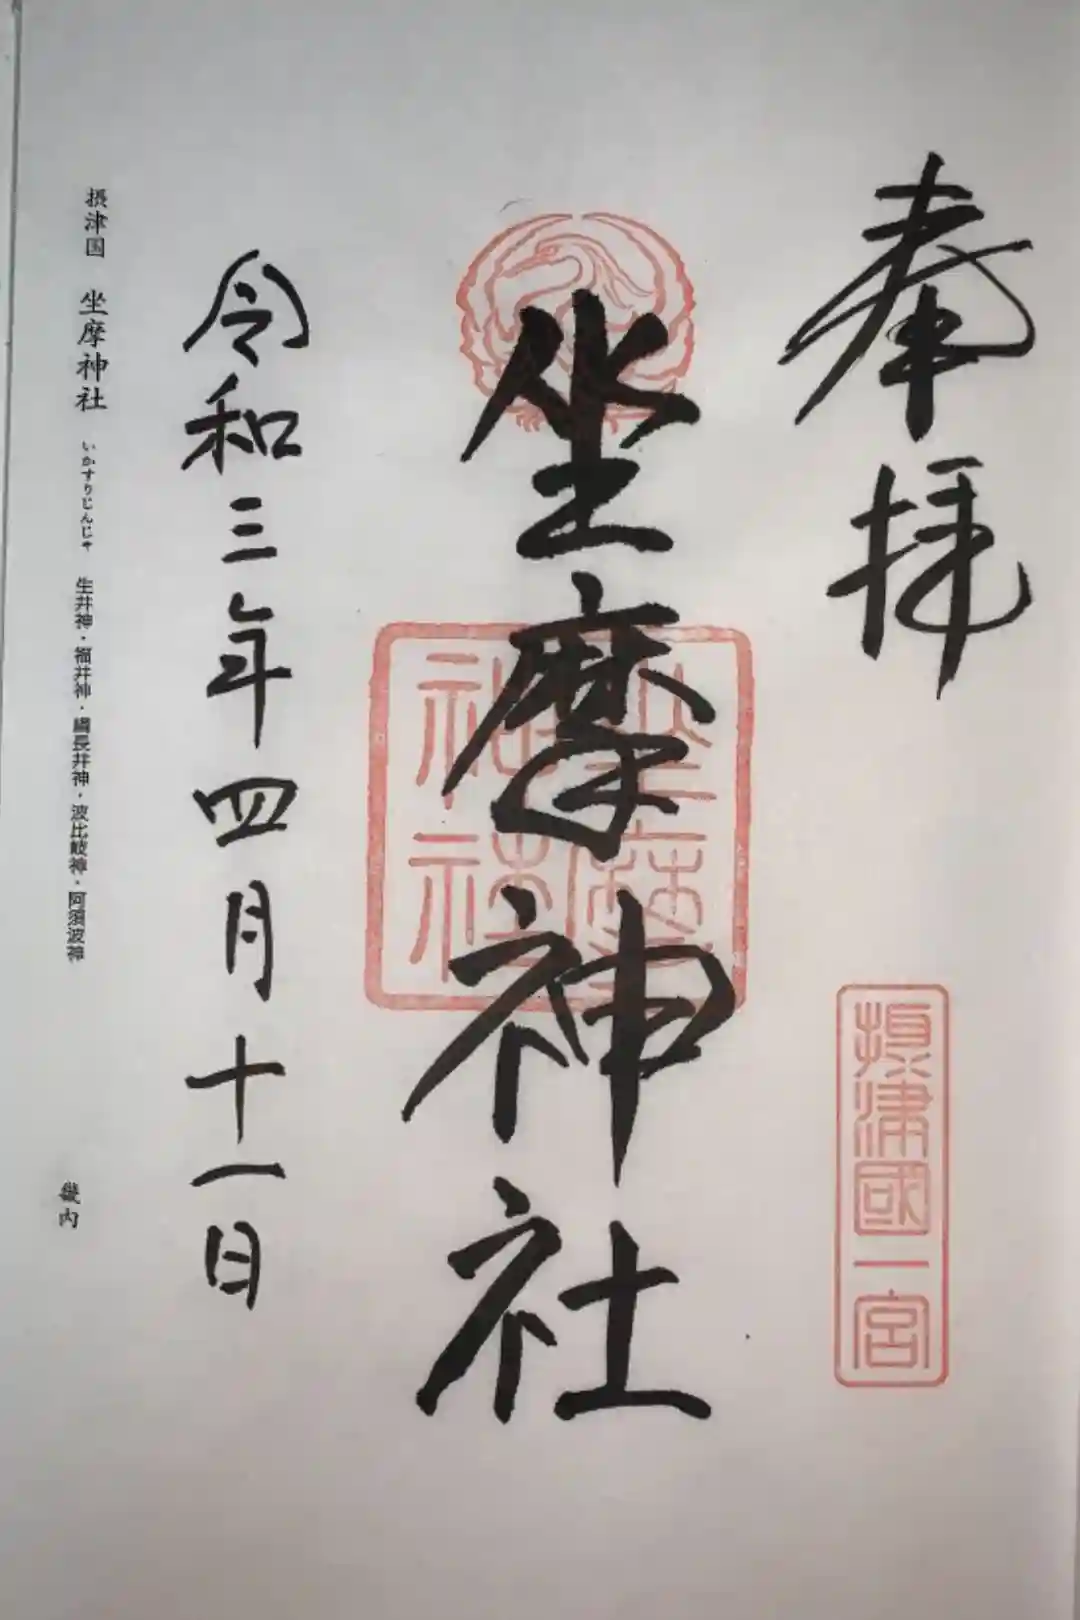 奉拝
摂津國一宮
坐摩神社
坐摩神社
令和三年四月十一日
摂津国 坐摩神社 いかすりじんじゃ 生井神・福井神・綱長井神・波比岐神・阿須波神
畿内